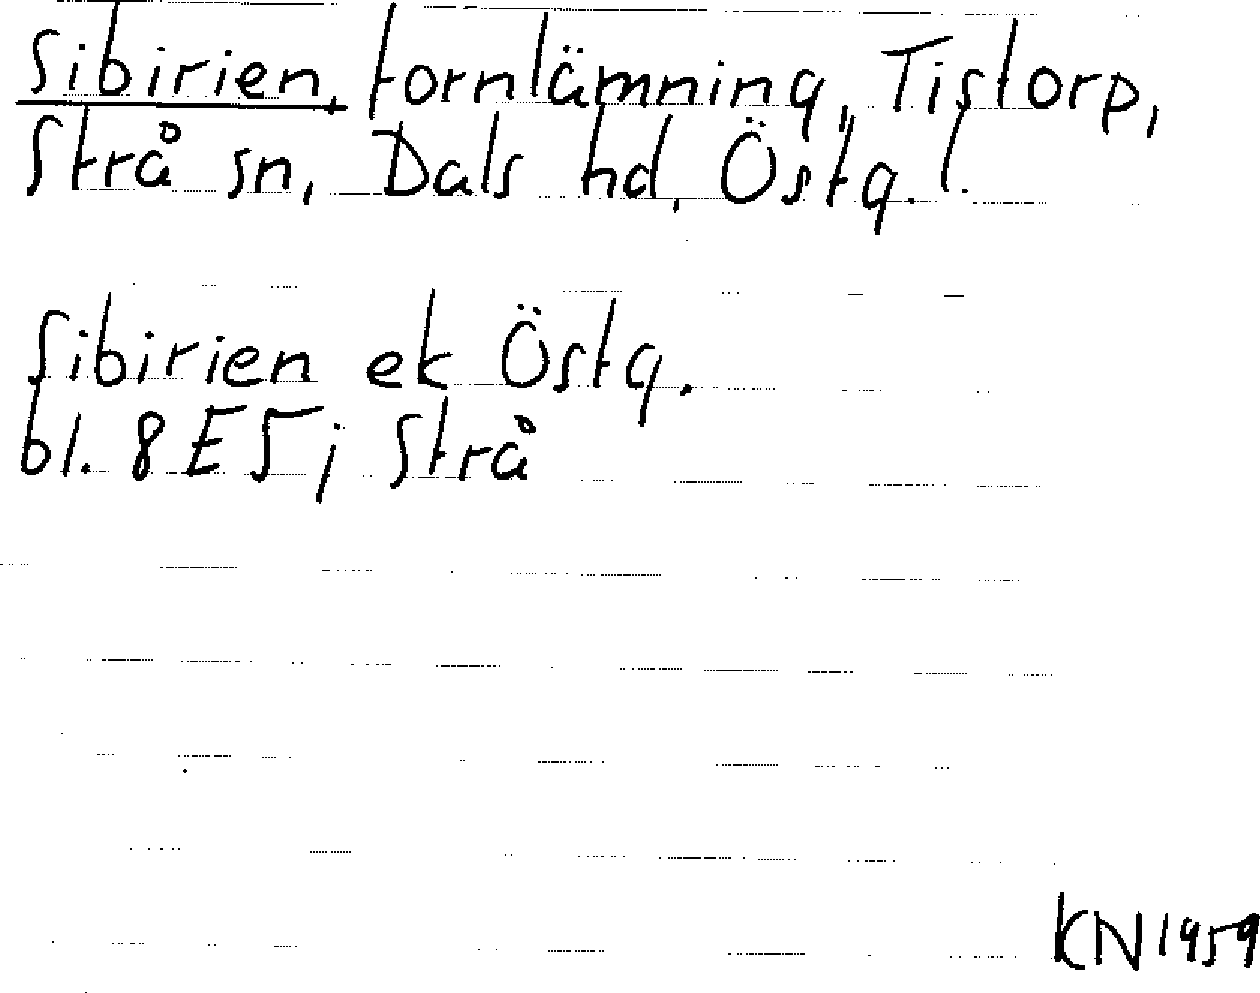 Sibirien, fornlämning, Tistorp,
Strå sn, Dals hd, Östg. l.
Sibirien ek Östg.
bl. 8 E 5 j Strå
KN 1959